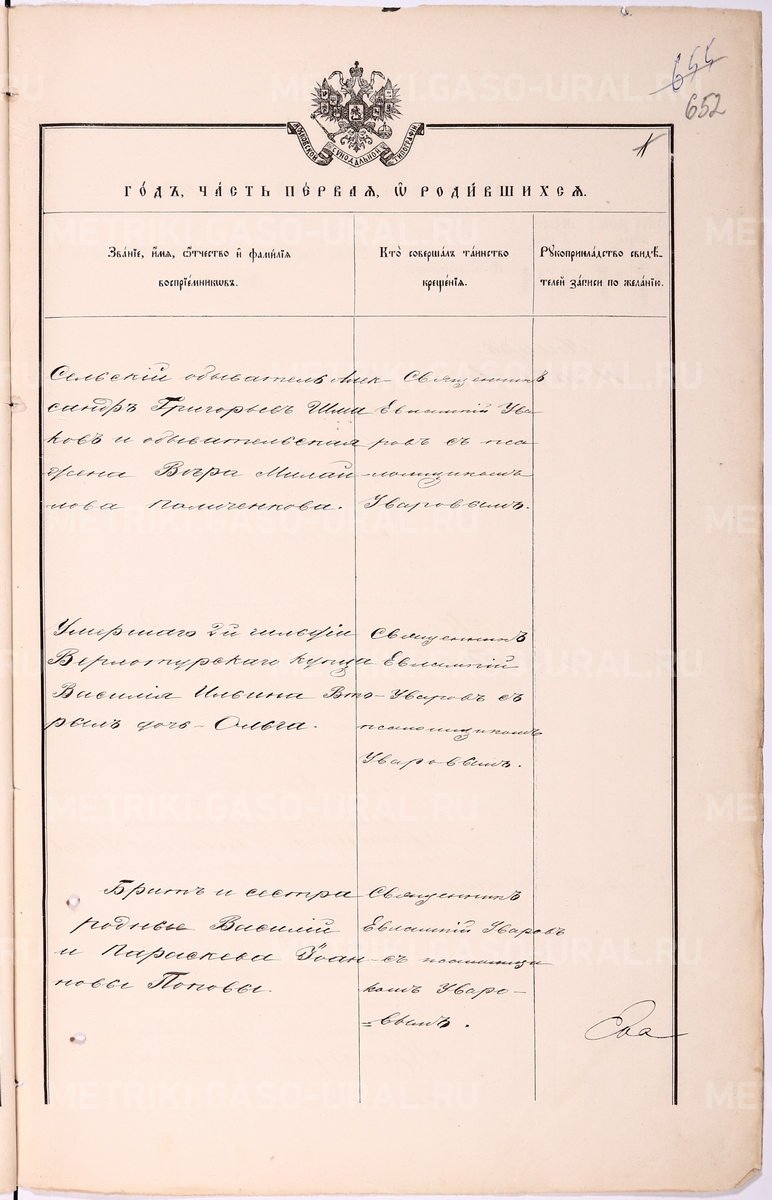 644
652
МОСКОВСКОЙ СѴНОДАЛЬНОЙ ТИПОГРАФІИ
1
ГО́ДЪ, ЧА́СТЬ ПЕ́РВАЯ, Ѡ РОДИ́ВШИХСЯ.
Зва́нїе, и҆́мя, ѻ҆́тчество и҆ фами́лїя
воспрїе́мникѡвъ.
Кто̀ соверша́лъ та́инство
креще́нїя.
Рꙋкоприкла́дство свидѣ́-
телей за́писи по жела́нїю.
Сельскій обыватель Алек-
сандръ Григорьевъ Шма
ковъ и обывательская
жена Вѣра Михай
лова
Священникъ
Евлампій Ува
ровъ съ пса
ломщикомъ
Уваровымъ.
Умершаго 2й гильдіи
Верхотурскаго купца
Василія Ильина Вто-
рыхъ дочь Ольга.
Священникъ
Евлампій
Уваровъ съ
псаломщикомъ
Уваровымъ.
Братъ и сестра
родные Василій
и Параскева Іоан
новы Поповы.
Священникъ
Евлампій Уваровъ
съ псаломщи
комъ Уваро-
=вымъ.
METRIKI.GASO-URAL.RU